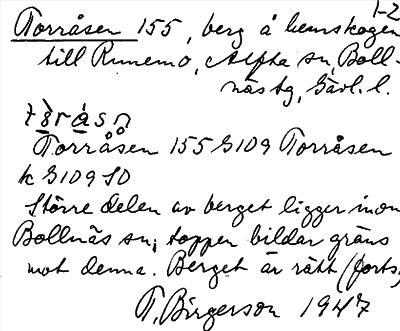 1-2
Torråsen 155, berg å hemskogen
till Runemo, Alfta sn, Boll-
näs tg, Gävl. l.
Torråsen 155 G109 Torråsen
k G109 SO
Större delen av berget ligger inom
Bollnäs sn; toppen bildar gräns
mot denna. Berget är rätt (forts.)
T. Birgerson 1947